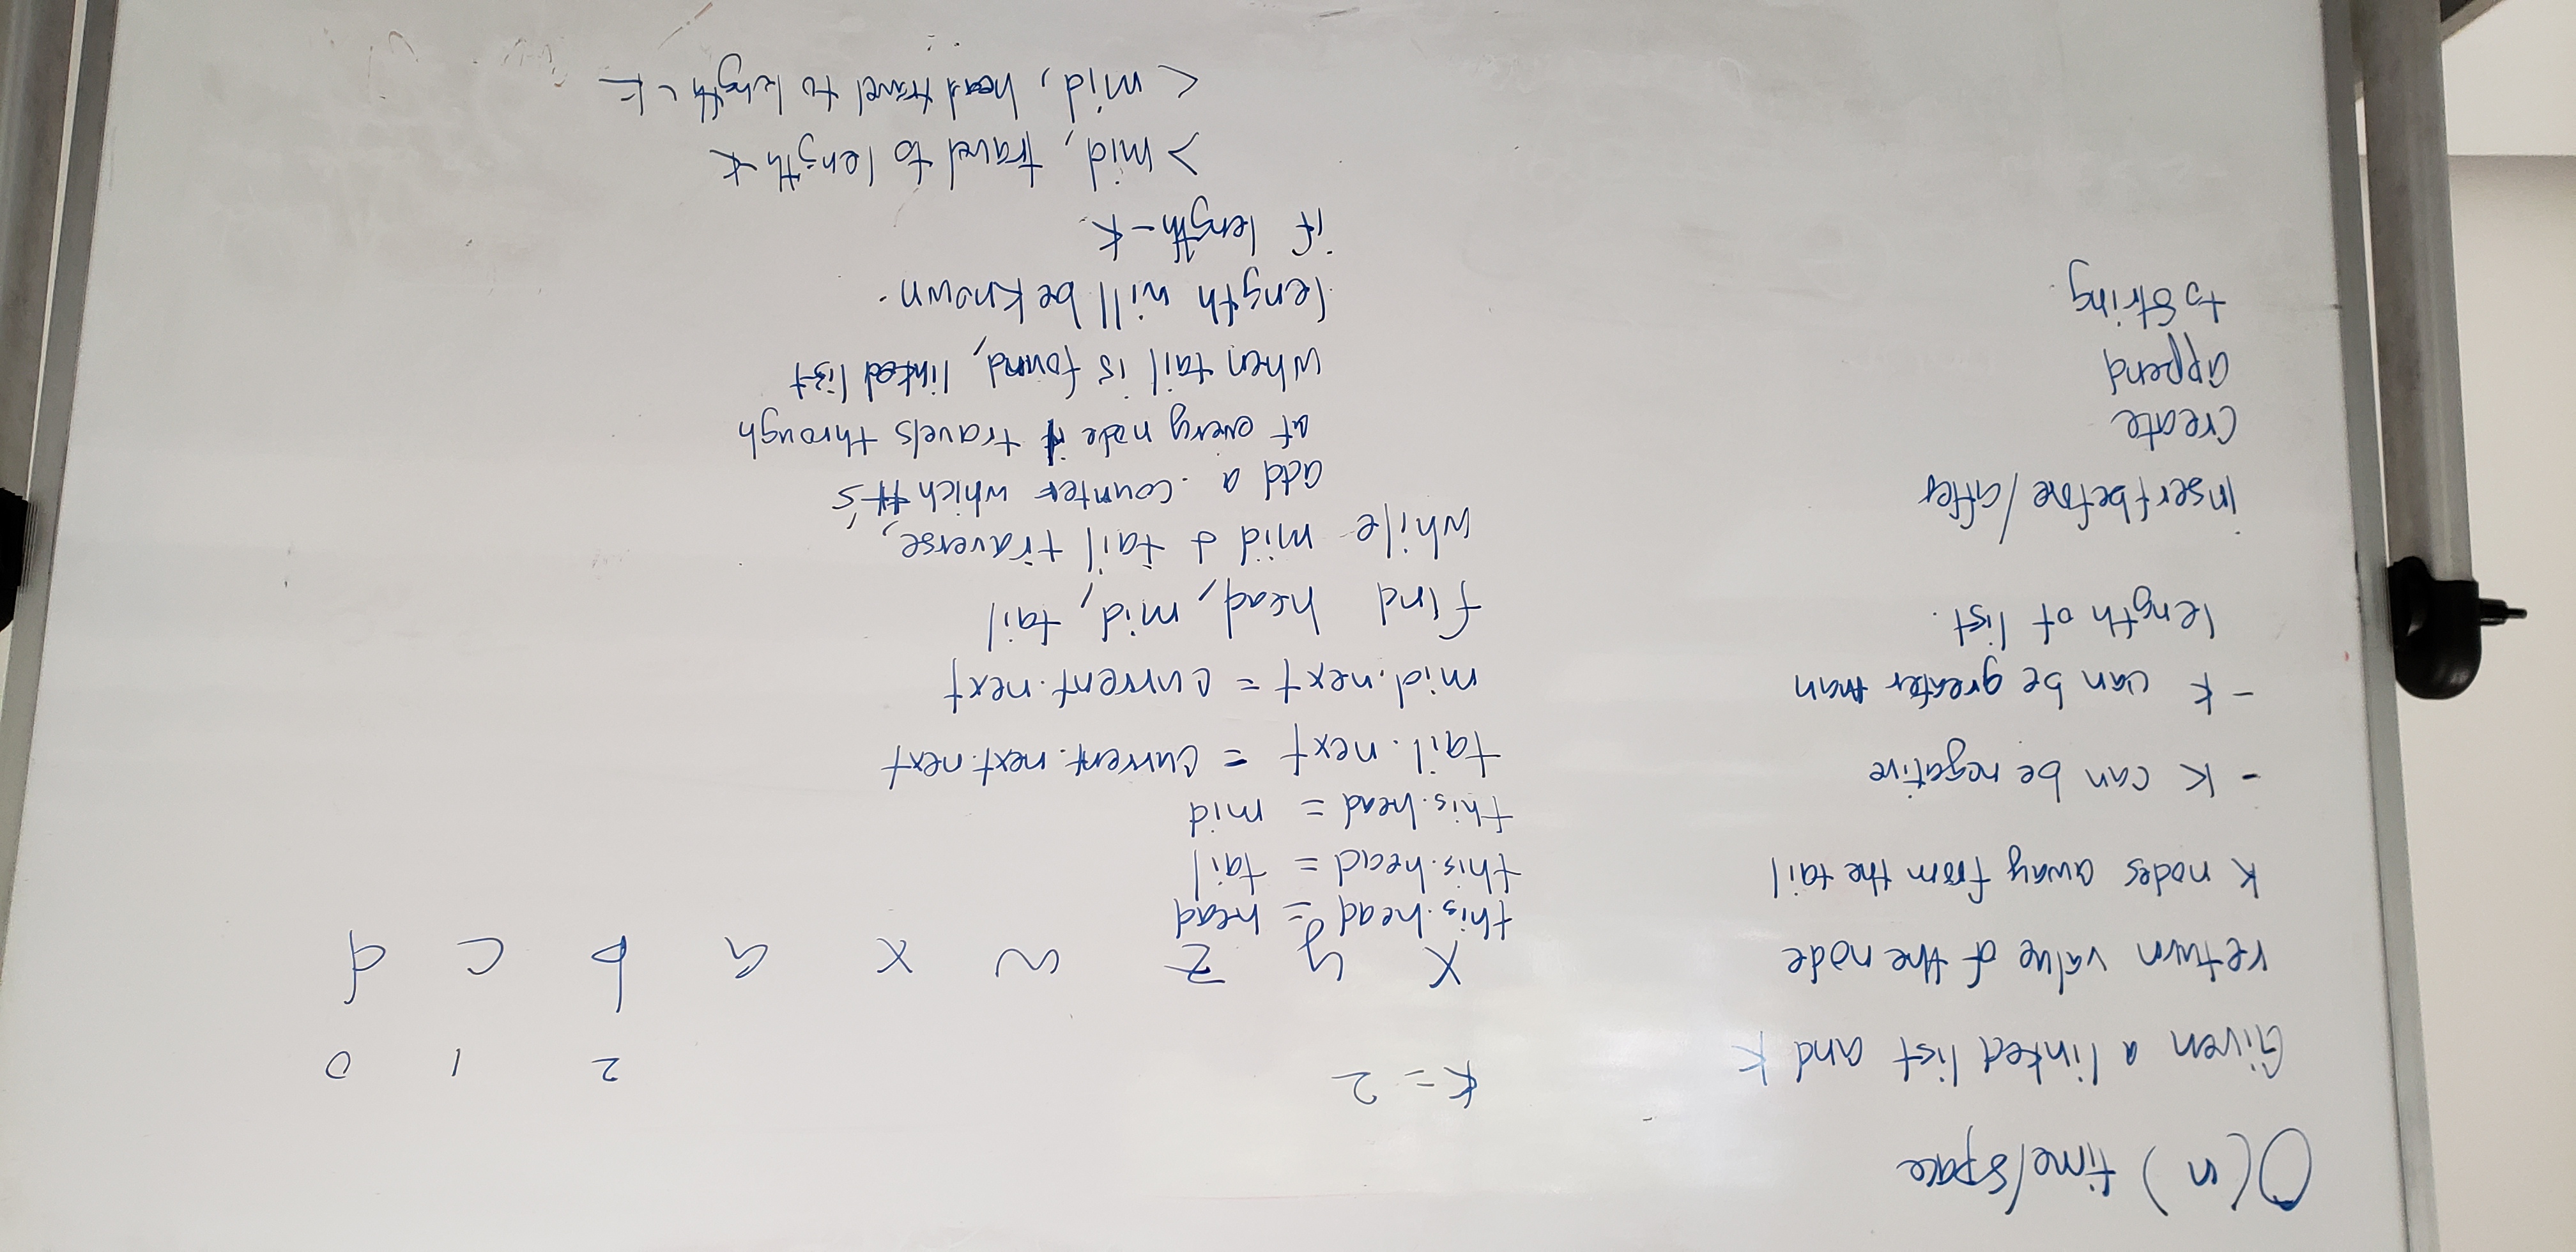 O(n) time/space
Given a linked list and k
return value of the node
k nodes away from the tail
- k can be negative
- k can be greater than
length of list.
insertbefore/after
create
append
toString.
k = 2
2 1 0
x y z w x a b c d
this.head = head
this.head = tail
this.head = mid
tail.next = current.next.next
mid.next = current.next
find head, mid, tail
while mid & tail traverse,
add a counter which ++'s
at every node it travels through
when tail is found, linked list
length will be known.
if length - k
> mid, travel to length - k
< mid, head travel to length - k